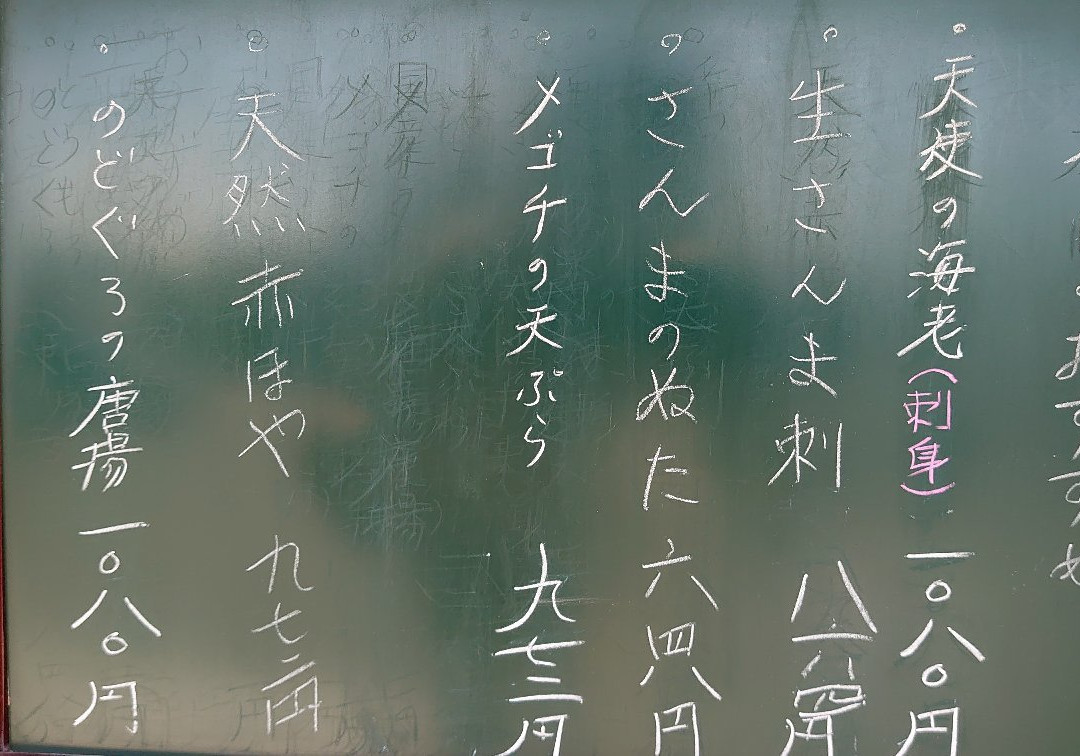 おすすめ
。天使の海老(刺身) 一〇八〇円
。生さんま刺 八六四円
。さんまのぬた 六四八円
。メゴチの天ぷら 九七二円
。天然赤ほや 九七二円
。のどぐろの唐揚 一〇八〇円